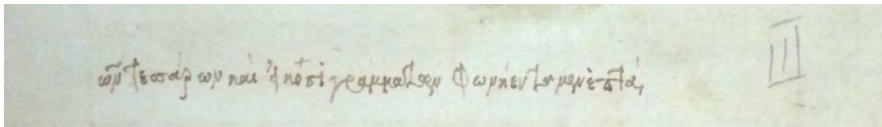 ὧν τεσσάρων καὶ εἴκοσι γραμμάτων φωνήεντα μὲν ἑπτά, III